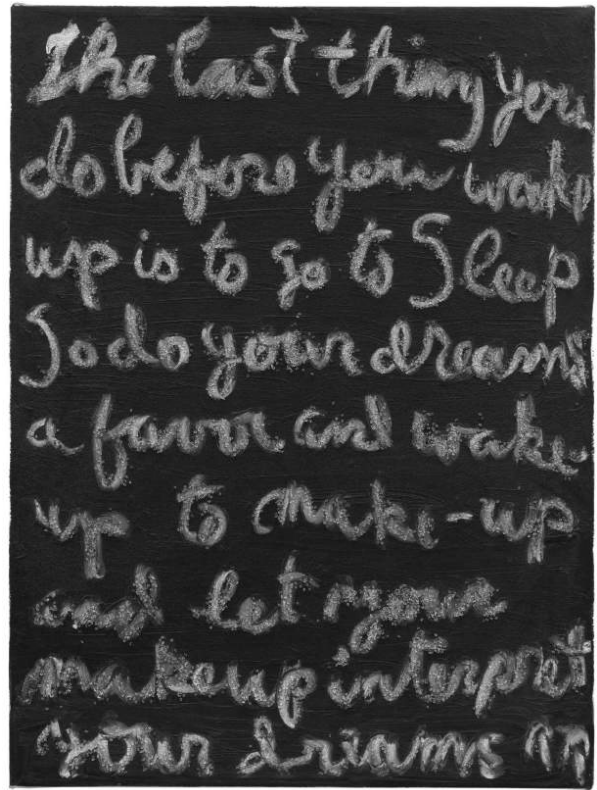 The last thing you
do before you wake
up is to go to Sleep
So do your dreams
a favor and wake
up to make-up
and let your
makeup interpret
your dreams